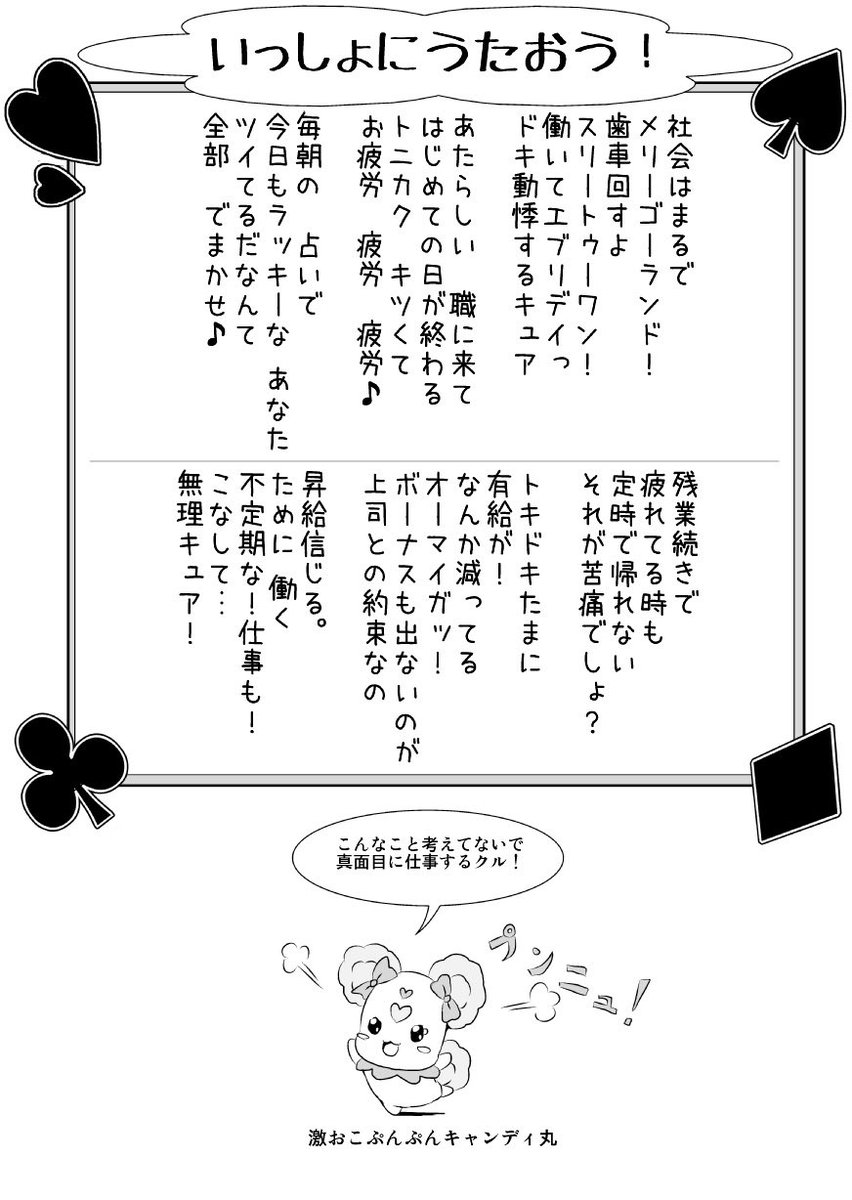 いっしょにうたおう！
社会はまるで
メリーゴーランド！
歯車回すよ
スリートゥーワン！
働いてエブリデイっ
ドキ動悸するキュア
あたらしい　職に来て
はじめての日が終わる
トニカク　キツくて
お疲労　疲労　疲労♪
毎朝の　占いで
今日もラッキーな　あなた
ツイてるだなんて
全部　でまかせ♪
残業続きで
疲れてる時も
定時で帰れない
それが苦痛でしょ？
トキドキたまに
有給が！
なんか減ってる
オーマイガッ！
ボーナスも出ないのが
上司との約束なの
昇給信じる。
ために　働く
不定期な！仕事も！
こなして…
無理キュア！
こんなこと考えてないで
真面目に仕事するクル！
プンニュ！
激おこぷんぷんキャンディ丸